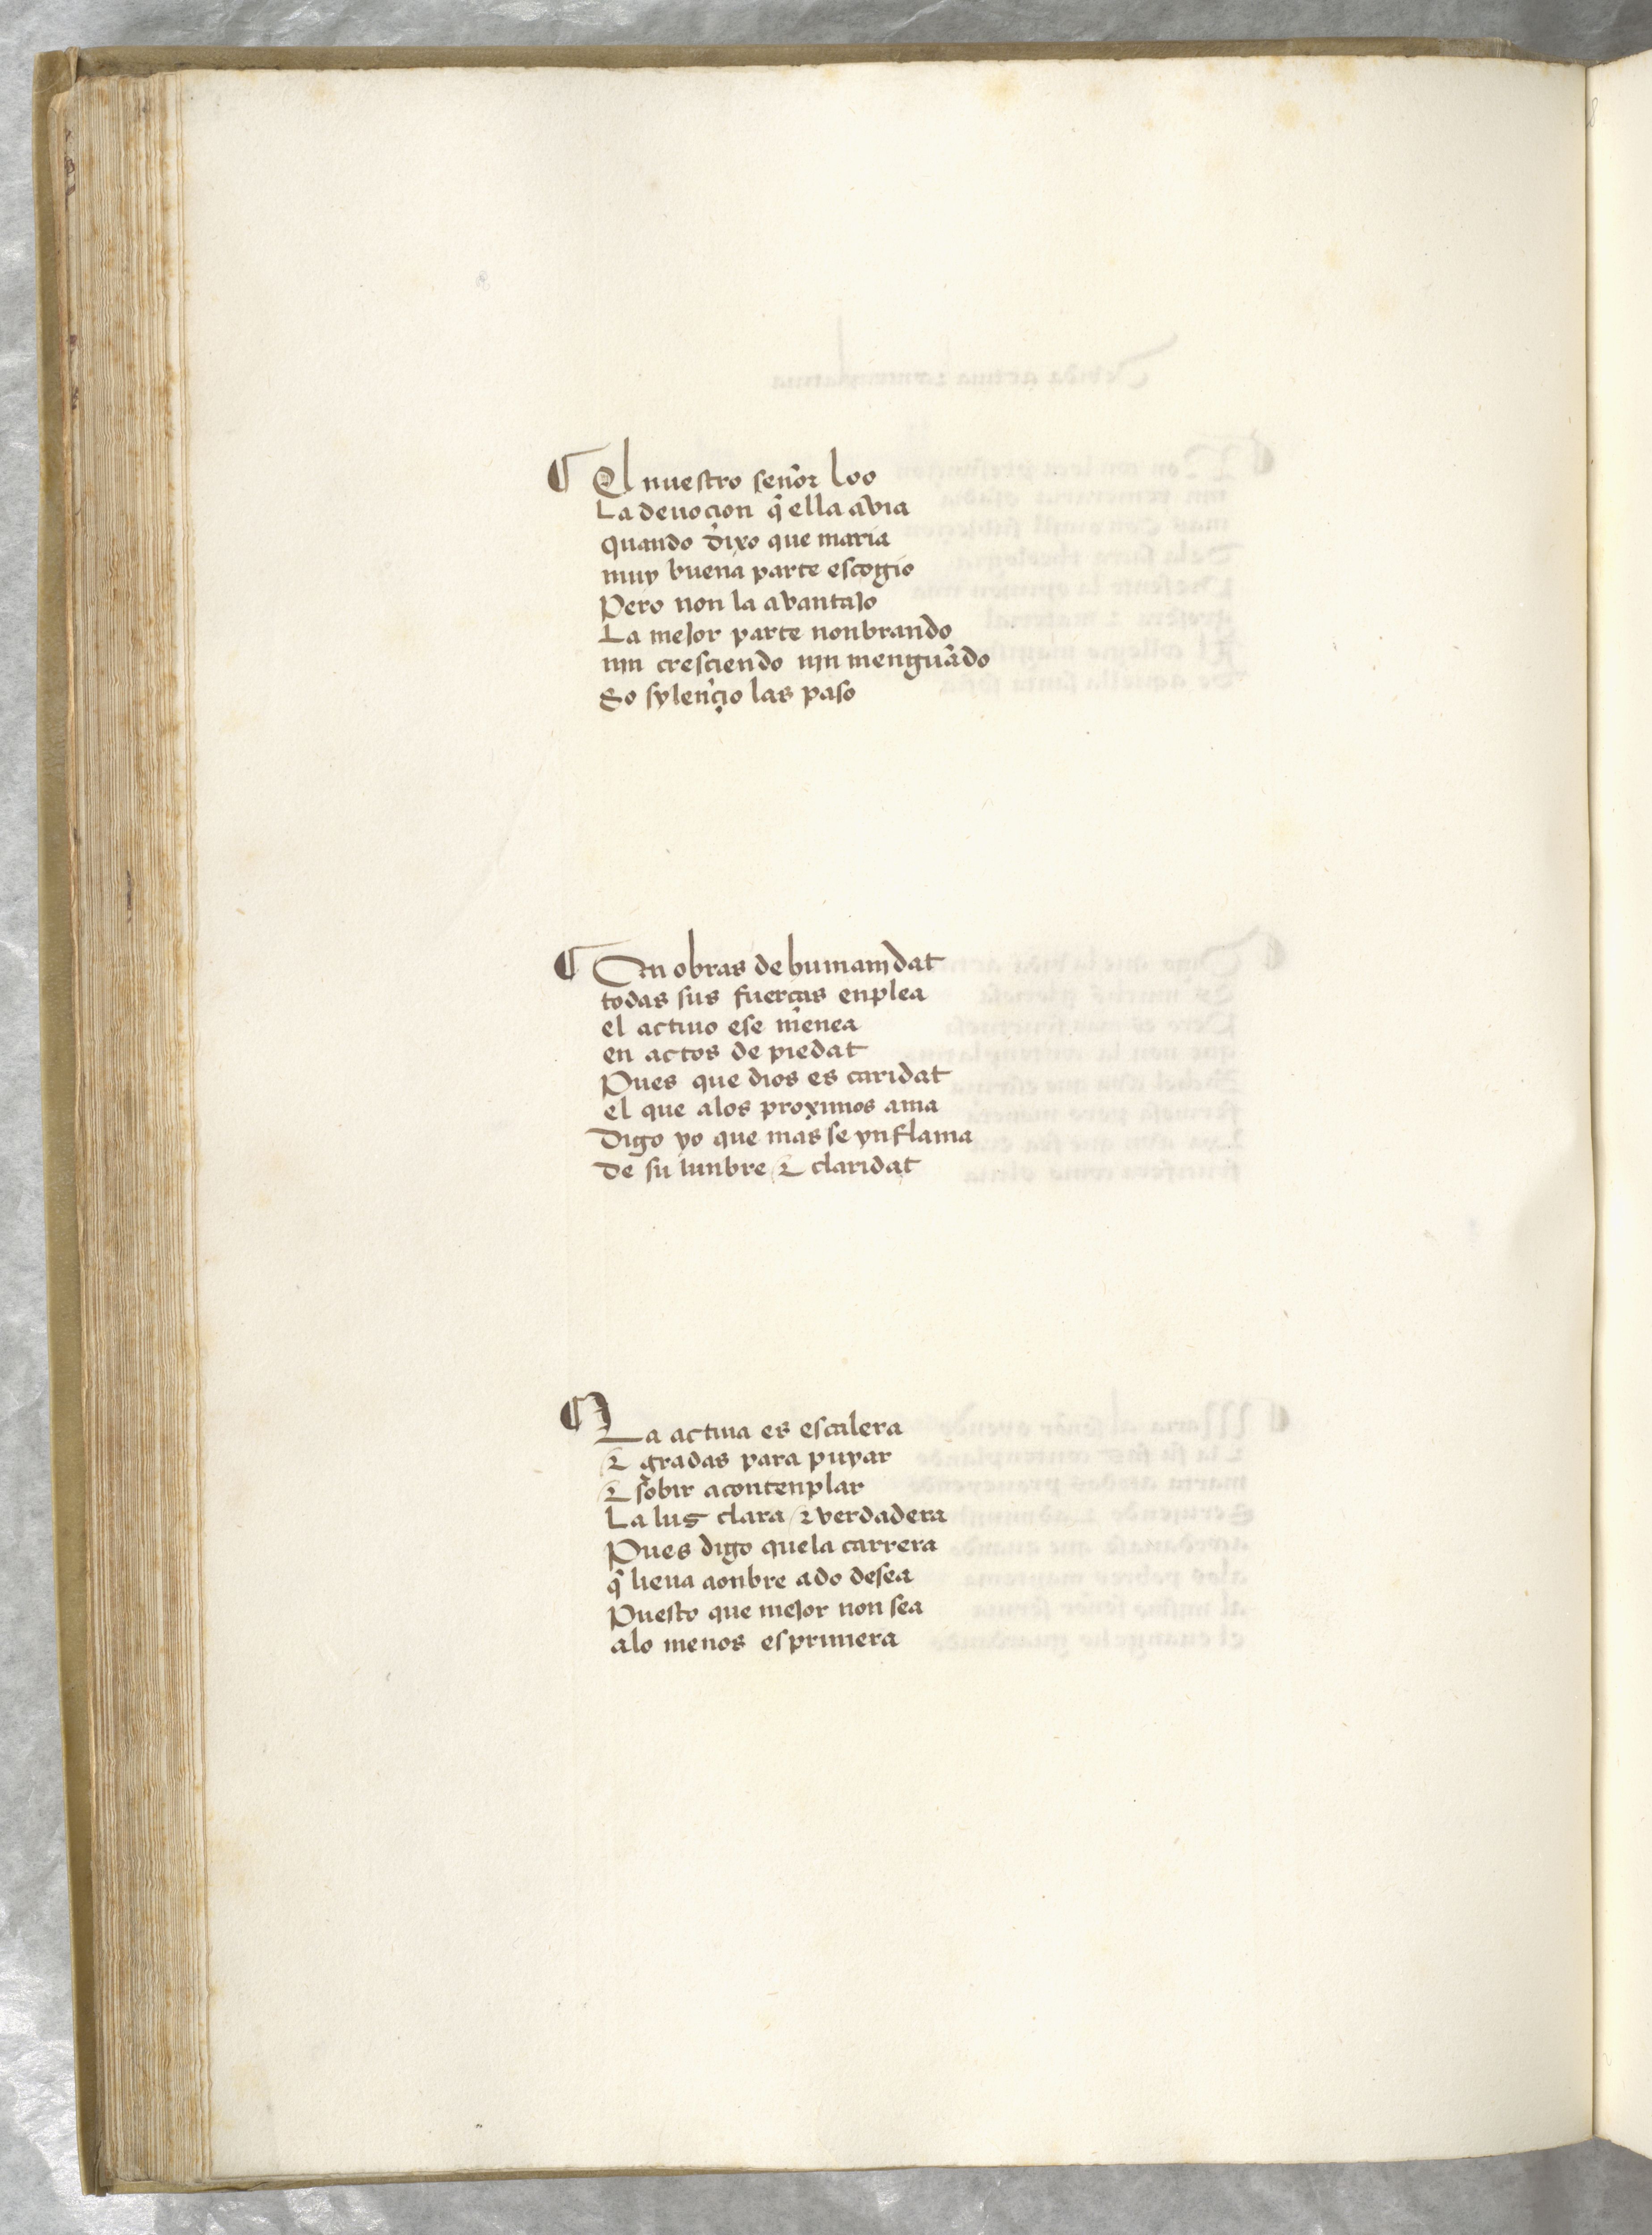 ¶ El nuestro señor loo
La deuoçion q̃ ella avia
quando dixo que maria
muy buena parte escogio
Pero non la avantaJo
La meJor parte nonbrando
nin cresciendo nin menguãdo
So sylençio las paso
¶ En obras de humanidat
todas sus fuerças enplea
el actiuo ese menea
en actos de piedat
Pues que dios es caridat
el que alos proximos ama
Digo yo que mas se ynflama
De su lunbre & claridat
¶ La actiua es escalera
& gradas para puyar
& sobir acontenplar
La lus clara & verdadera
Pues digo quela carrera
q̃ lieua aonbre ado desea
Puesto que meJor non sea
alo menos es primera